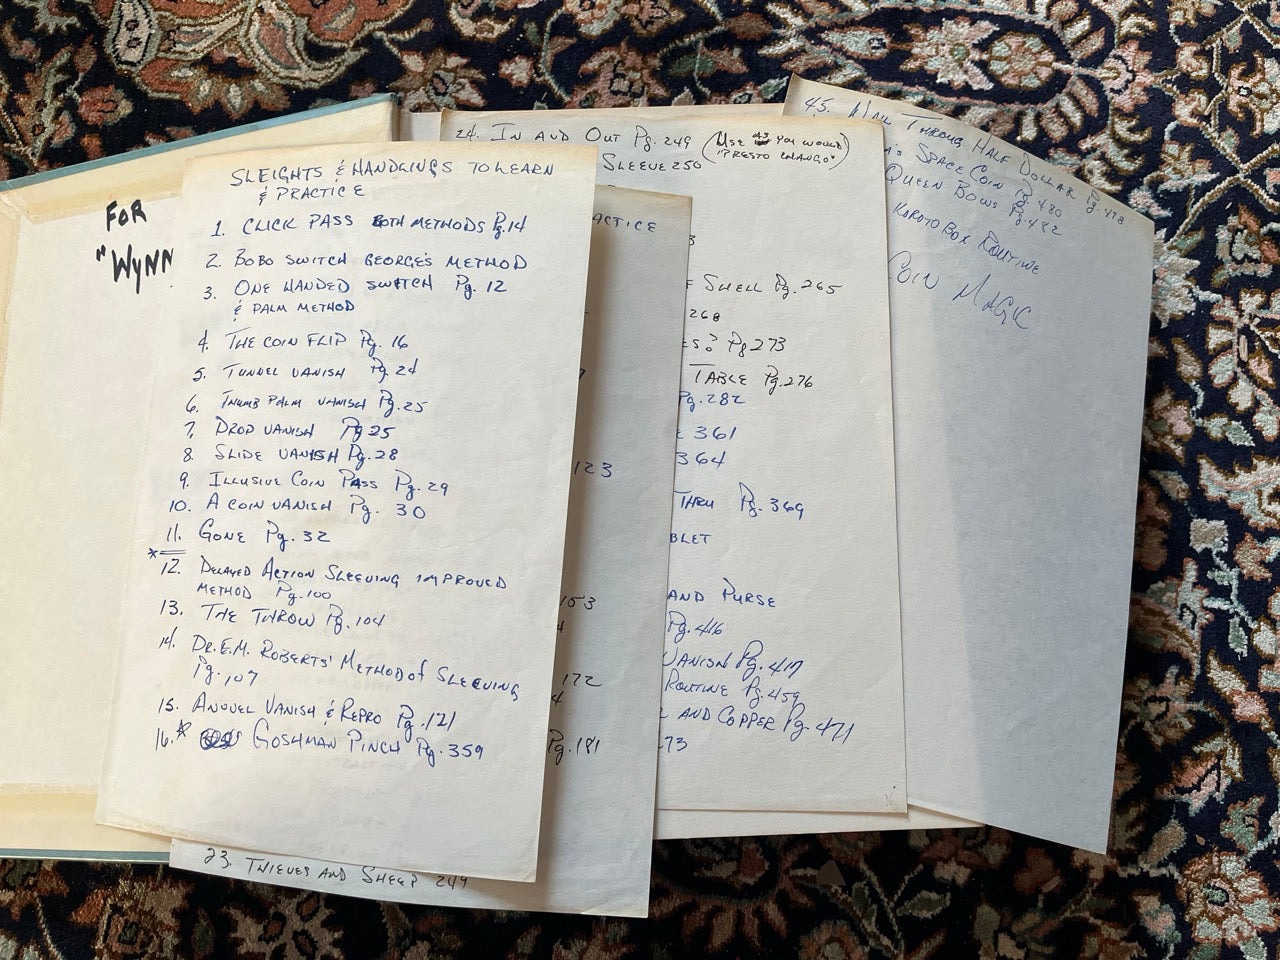 FOR
"WYNN
SLEIGHTS & HANDLINGS TO LEARN
& PRACTICE
1. CLICK PASS BOTH METHODS Pg. 14
2. BOBO SWITCH GEORGE'S METHOD
3. ONE HANDED SWITCH Pg. 12
& PALM METHOD
4. THE COIN FLIP Pg. 16
5. TUNNEL VANISH Pg. 24
6. THUMB PALM VANISH Pg. 25
7. DROP VANISH Pg 25
8. SLIDE VANISH Pg. 28
9. ILLUSIVE COIN PASS Pg. 29
10. A COIN VANISH Pg. 30
11. GONE Pg. 32
*
12. DELAYED ACTION SLEEVING IMPROVED
METHOD Pg. 100
13. THE THROW Pg. 104
14. DR. E.M. ROBERTS' METHOD of SLEEVING
Pg. 107
15. ANQUEL VANISH & REPRO Pg. 121
16.* GOSHMAN PINCH Pg. 359
ACTICE
123
153
172
4
Pg. 181
23. THIEVES AND SHEEP 249
24. IN AND OUT Pg. 249 (USE AS YOU WOULD
"PRESTO CHANGO")
SLEEVE 250
3
F SHELL Pg. 265
268
ES? Pg 273
TABLE Pg. 276
Pg. 282
361
364
THRU Pg. 369
BLET
AND PURSE
Pg. 416
VANISH Pg. 417
ROUTINE Pg. 459
AND COPPER Pg. 471
73
45. NAIL THROUGH HALF DOLLAR Pg. 478
A'S SPACE COIN Pg. 480
QUEEN BOWS Pg. 482
KOROTO BOX ROUTINE
COIN MAGIC